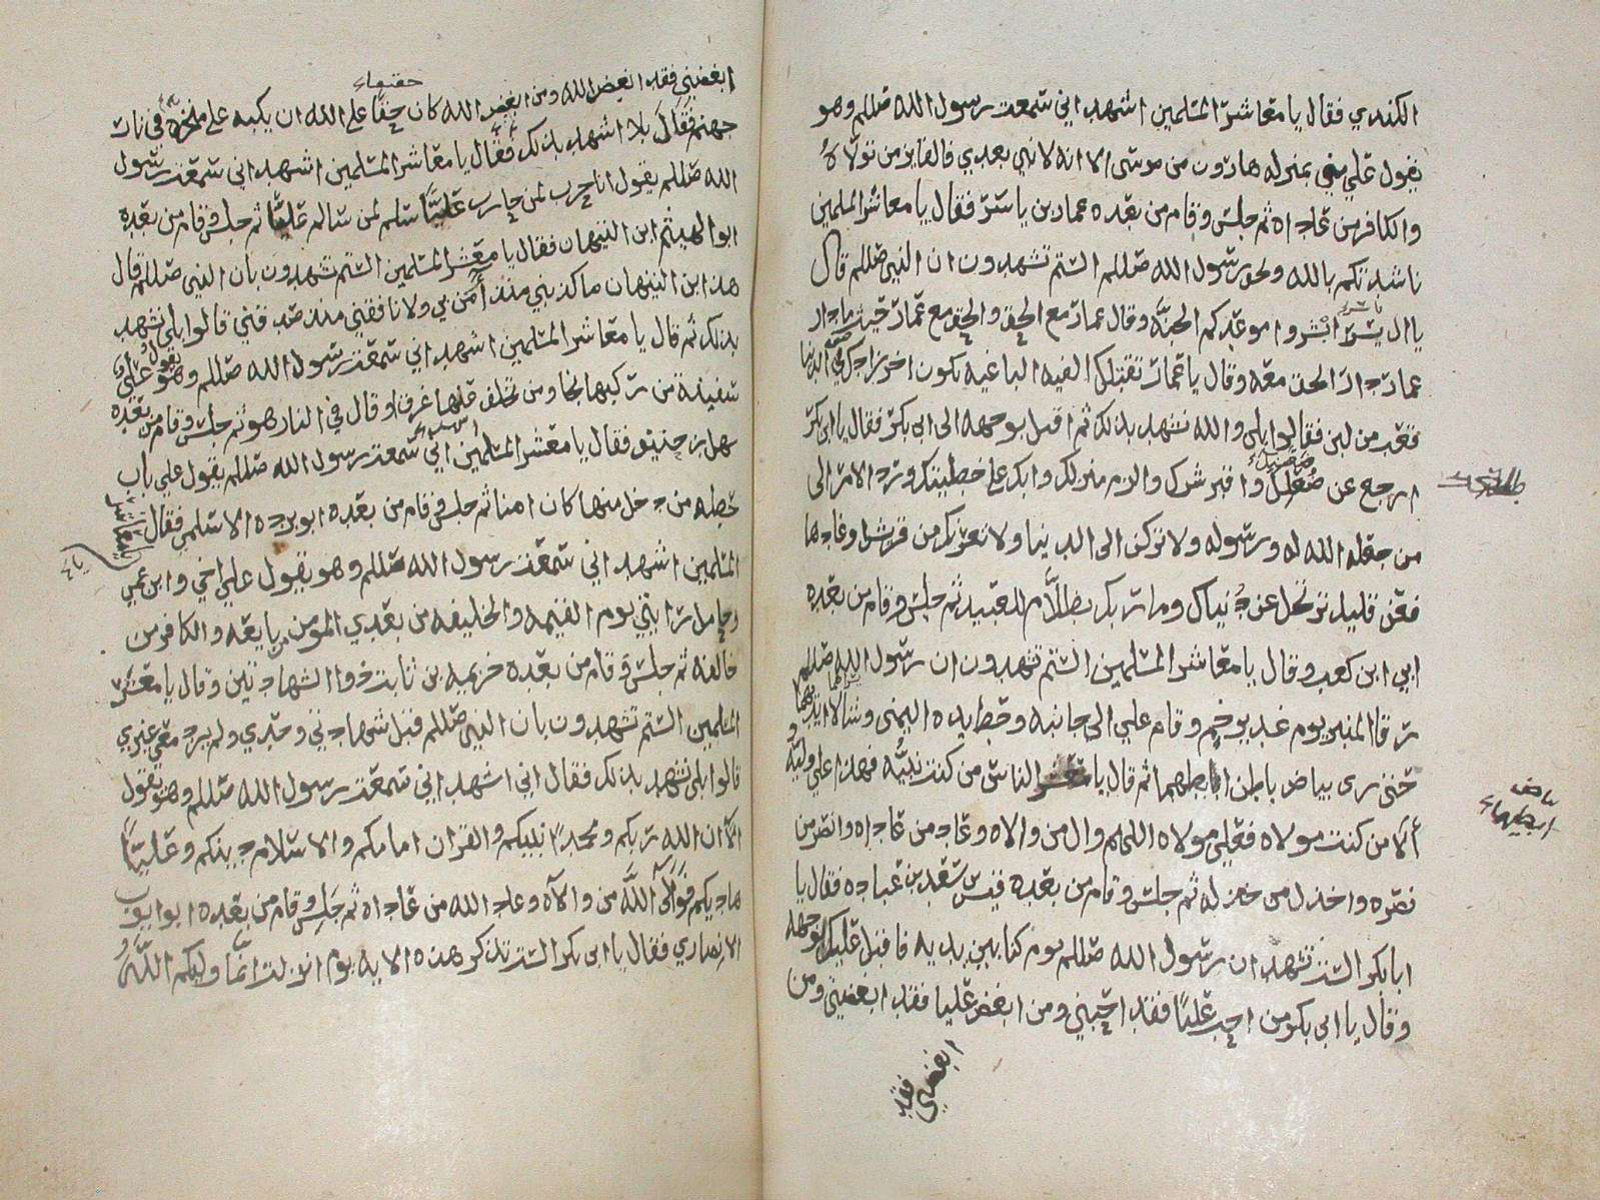 الكندي فقال يا معاشر المسلمين اشهد اني سمعت رسول الله صللم وهو
يقول علي مني بمنزله هارون من موسى الا انه لا نبي بعدي فالفايز من تولاه
والكافر من عاداه ثم جلس وقام من بعده عمار بن ياسر فقال يا معاشر المسلمين
ناشدتكم بالله وبحق رسول الله صللم الستم تشهدون ان النبي صللم قال
يا ال ياسر ابشروا موعدكم الجنه وقال عمار مع الحق والحق مع عمار حيث ما دار
عمار دار الحق معه وقال يا عمار تقتلك الفيه الباغيه يكون اخر زادك من الدنيا
قعب من لبن فقالوا بلى والله نشهد بذلك ثم اقبل بوجهه الى ابي بكر فقال يا ابي بكر
ارجع عن وا شرك والزم منزلك وابك على خطيتك ورد الامر الى
من جعله الله له ورسوله ولا تركن الى الدنيا ولا تغرنك من قريش وغادها
فعن قليل ترتحل عن دنياك وما ربك بظلام للعبيد ثم جلس وقام من بعده
ابي ابن كعب وقال يا معاشر المسلمين الستم تشهدون ان رسول الله صللم
رقا المنبر يوم غدير خم وقام علي الى جانبه وحط يده اليمنى
حتى نرى بياض باطن ابطيهما ثم قال يا معشر الناس من كنت نبيه فهذا علي وليه
بياض
ابطيهما
ألا من كنت مولاه فعلي مولاه اللهم وال من والاه وعاد من عاداه وانصر من
نصره واخذل من خذله ثم جلس وقام من بعده قيس بن سعد بن عباده فقال يا
ابا بكر الست تشهد ان رسول الله صللم يوم كنا بين يديه فاقبل عليك بوجهه
وقال يا ابي بكر من احب عليًا فقد احبني ومن ابغض عليا فقد ابغضني ومن
ابغضني فقد
حقيقا
ابغضني فقد ابغض الله ومن ابغض الله كان حقًا على الله ان يكبه على منخره في نار
جهنم فقال بلا اشهد بذلك فقال يا معاشر المسلمين اشهد اني سمعت رسول
الله صللم يقول انا حرب لمن حارب عليًا سلم لمن سالم عليًا ثم جلس وقام من بعده
ابو الهيثم ابن التيهان فقال يا معشر المسلمين الستم تشهدون بان النبي صللم قال
هذا ابن التيهان ما كذبني منذ أمن بي ولا نافقني منذ صدقني قالوا بلى نشهد
بذلك ثم قال يا معاشر المسلمين اشهد اني سمعت رسول الله صللم وهو يقول علي
سفينة من ركبها نجا ومن تخلف عنها غرق وقال في النار هو ثم جلس وقام من بعده
سهل بن حنيف فقال يا معشر المسلمين اشهد اني سمعت رسول الله صللم يقول علي باب
حطه من دخل منها كان امنا ثم جلس وقام من بعده ابو برده الاسلمي فقال يا معشر
المسلمين اشهد اني سمعت رسول الله صللم وهو يقول علي اخي وابن عمي
وحامل رايتي يوم القيمه والخليفه من بعدي المومن من يا بعه والكافر من
خالفه ثم جلس وقام من بعده خزيمه بن ثابت ذوا الشهادتين وقال يا معشر
المسلمين الستم تشهدون بان النبي صللم قبل شهادتي وحدي ولم يرد معي غيري
قالوا بلى نشهد بذلك فقال اني اشهد اني سمعت رسول الله صللم وهو يقول
الا ان الله ربكم ومحمدًا نبيكم والقران امامكم والاسلام دينكم وعليًا
هاديكم فوالى الله من والاه وعاد الله من عاداه ثم جلس وقام من بعده ابو ايوب
الانصاري فقال يا ابي بكر الست تذكر هذه الايه يوم انزلت انما وليكم الله